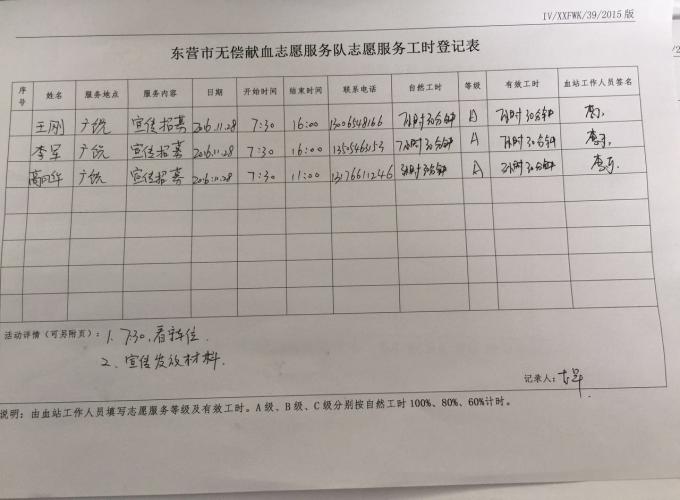 IV/XXFWK/39/2015 版
东营市无偿献血志愿服务队志愿服务工时登记表
序号 姓名 服务地点 服务内容 日期 开始时间 结束时间 联系电话 自然工时 等级 有效工时 血站工作人员签名
王刚 广饶 宣传招募 2016.11.28 7:30 16:00 13006548166 7小时30分钟 A 7小时30分钟
李军 广饶 宣传招募 2016.11.28 7:30 16:00 7小时30分钟 A 7小时30分钟
广饶 宣传招募 2016.11.28 7:30 11:00 13176611246 3小时30分钟 A 3小时30分钟
活动详情（可另附页）：1、7:30，看车位.
2、宣传发放材料.
记录人：
说明：由血站工作人员填写志愿服务等级及有效工时。A级、B级、C级分别按自然工时 100%、80%、60%计时。